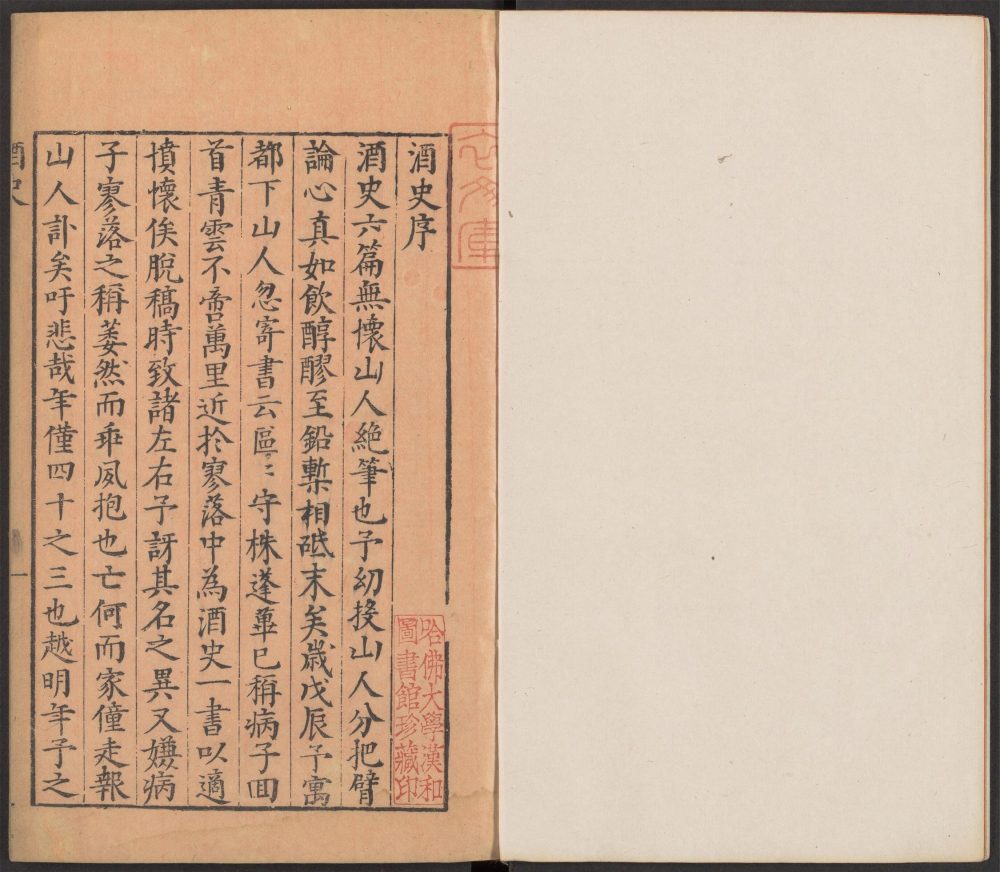 酒史序
酒史六篇無懷山人絶筆也予幼投山人分把臂
論心真如飲醇醪至鉛槧相砥末矣歲戊辰予寓
都下山人忽寄書云區〻守株蓬蓽已稱病子回
首青雲不啻萬里近於寥落中為酒史一書以適
憤懷俟脫稿時致諸左右予訝其名之異又嫌病
子寥落之稱萎然而乖夙抱也亡何而家僮走報
山人訃矣吁悲哉年僅四十之三也越明年予之
酒史
一
哈佛大學漢和
圖書館珍藏印